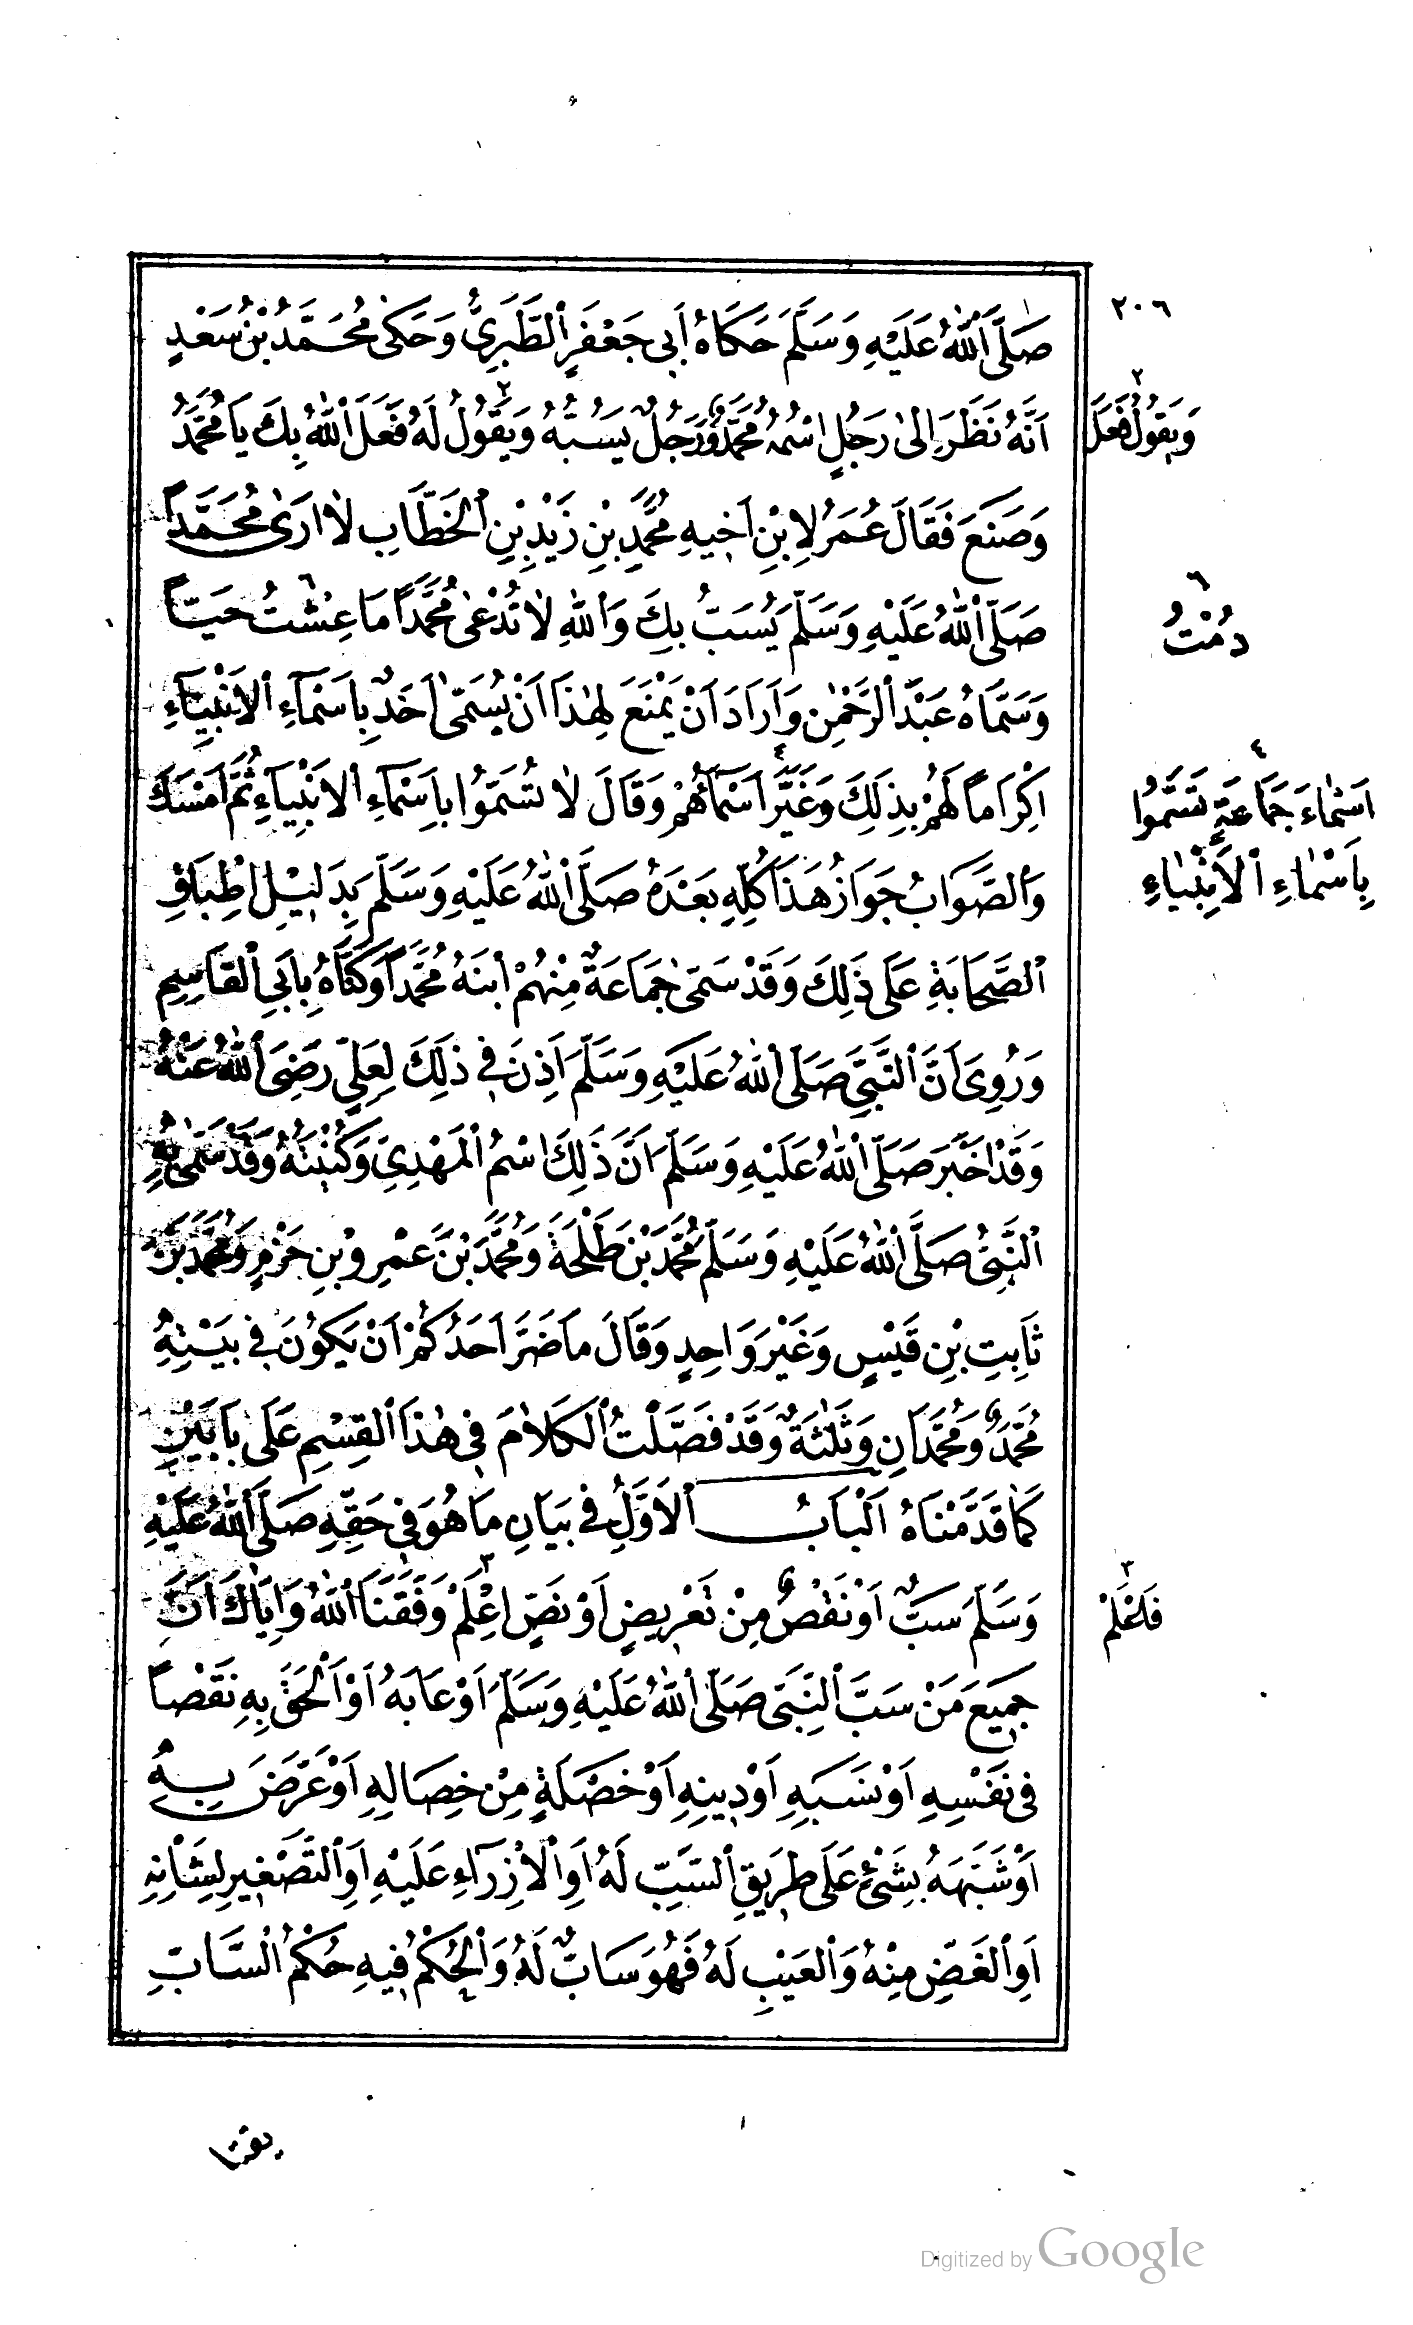 ٢٠٦
صَلَّى ٱللّٰهُ عَلَيْهِ وَسَلَّمَ حَكَاهُ أَبِى جَعْفَرٍ ٱلطَّبَرِىُّ وَحَكٰى مُحَمَّدُ بْنُ سَعْدٍ
اَنَّهُ نَظَرَ اِلىٰ رَجُلٍ اسْمُهُ مُحَمَّدٌ وَرَجُلٌ يَسُبُّهُ وَيَقُولُ٢ لَهُ فَعَلَ ٱللّٰهُ بِكَ يَا مُحَمَّدُ
٢
وَيَقُولُ فَعَلَ
وَصَنَعَ فَقَالَ عُمَرُ لِابْنِ اَخِيهِ مُحَمَّدِ بْنِ زَيْدِ بْنِ ٱلْخَطَّابِ لاٰ اَرَىٰ مُحَمَّداً
صَلَّى ٱللّٰهُ عَلَيْهِ وَسَلَّمَ يُسَبُّ بِكَ وَٱللّٰهِ لاٰ تُدْعٰى مُحَمَّداً مَا عِشْتُ٦ حَيّاً
٦
دُمْتُ
وَسَمَّاهُ عَبْدَ ٱلرَّحْمٰنِ وَاَرَادَ اَنْ يَمْنَعَ لِهٰذَا اَنْ يُسَمّٰى اَحَدٌ بِاَسْمَاءِ ٱلْاَنْبِيَاءِ
اِكْرَاماً لَهُمْ بِذٰلِكَ وَغَيَّرَ٤ اَسْمَاۤئَهُمْ وَقَالَ لاٰ تُسَمَّوُا بِاَسْمَاۤءِ ٱلْاَنْبِيَاءِ ثُمَّ اَمْسَكَ
٤
اَسْمَاءَ جَمَاعَةٍ تَسَمَّوُا
بِاَسْمَاءِ ٱلْاَنْبِيَاءِ
وَٱلصَّوَابُ جَوَازُ هَذَا كُلِّهِ بَعْدَهُ صَلَّى ٱللّٰهُ عَلَيْهِ وَسَلَّمَ بِدَلِيْلِ اِطْبَاقِ
ٱلصَّحَابَةِ عَلَى ذٰلِكَ وَقَدْ سَمّٰى جَمَاعَةٌ مِنْهُمْ اْبنَهُ مُحَمَّداً وَكَنَّاهُ بِاَبِى ٱلْقَاسِمِ
وَرُوِىَ اَنَّ ٱلنَّبِىَّ صَلَّى ٱللّٰهُ عَلَيْهِ وَسَلَّمَ اَذِنَ فِى ذٰلِكَ لِعَلِىٍّ رَضِىَ ٱللّٰهُ عَنْهُ
وَقَدْ اَخْبَرَ صَلَّى ٱللّٰهُ عَلَيْهِ وَسَلَّمَ اَنَّ ذَلِكَ اسْمُ ٱلْمَهْدِىِّ وَكُنْيَتُهُ وَقَدْ سَمّٰى بِهِ
ٱلنَّبِىُّ صَلَّى ٱللّٰهُ عَلَيْهِ وَسَلَّمَ مُحَمَّدَ بْنَ طَلْحَةَ وَمُحَمَّدَ بْنَ عَمْرِو بْنِ حَزْمٍ وَمُحَمَّدَ بْنَ
ثَابِتِ بْنِ قَيْسٍ وَغَيْرَ وَاحِدٍ وَقَالَ مَا ضَرَّ اَحَدَكُمْ اَنْ يَكُوُنَ فِى بَيْتِهِ
مُحَمَّدٌ وَمُحَمَّدَانِ وَثَلٰثَةٌ وَقَدْ فَصَّلْتُ ٱلْكَلاٰمَ فِى هٰذَا ٱلْقِسْمِ عَلَى بَابَيْنِ
كَمَا قَدَّمْنَاهُ اَلْبَابُ ٱلْاَوَّلُ فِى بَيَانِ مَا هُوَ فِى حَقِّهِ صَلَّى ٱللّٰهُ عَلَيْهِ
وَسَلَّمَ سَبٌّ اَوْ نَقْصٌ مِنْ تَعْرِيضٍ اَوْ نَصٍّ اِعْلَمْ٣ وَفَّقَنَا ٱللّٰهُ وَاِيَّاكَ اَنَّ
٣
فَاعْلَمْ
جَمِيعَ مَنْ سَبَّ ٱلنَّبِىَّ صَلَّى ٱللّٰهُ عَلَيْهِ وَسَلَّمَ اَوْ عَابَهُ اَوْ اَلْحَقَ بِهِ نَقْصاً
فِى نَفْسِهِ اَوْ نَسَبِهِ اَوْ دِينِهِ اَوْ خَصْلَةٍ مِنْ خِصَالِهِ اَوْ عَرَّضَ بِهِ
اَوْ شَبَّهَهُ بِشَىْءٍ عَلَى طَرِيقِ ٱلسَّبِّ لَهُ اَوِ ٱلْاِزْرَاۤءِ عَلَيْهِ اَوِ ٱلتَّصْغِيرِ لِشَاْنِهِ
اَوِ ٱلْغَضِّ مِنْهُ وَٱلْعَيْبِ لَهُ فَهُوَ سَابٌّ لَهُ وَٱلْحُكْمُ فِيهِ حُكْمُ ٱلسَّابِّ
يقتل
Digitized by Google